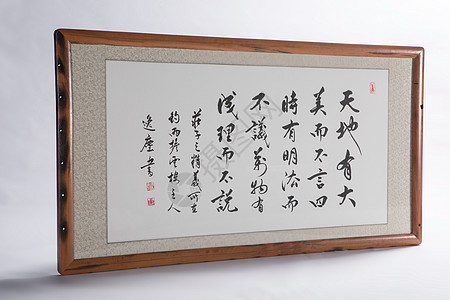 天地有大
美而不言四
時有明法而
不議萬物有
成理而不說
莊子之精義所
約而 樓主人
逸塵書